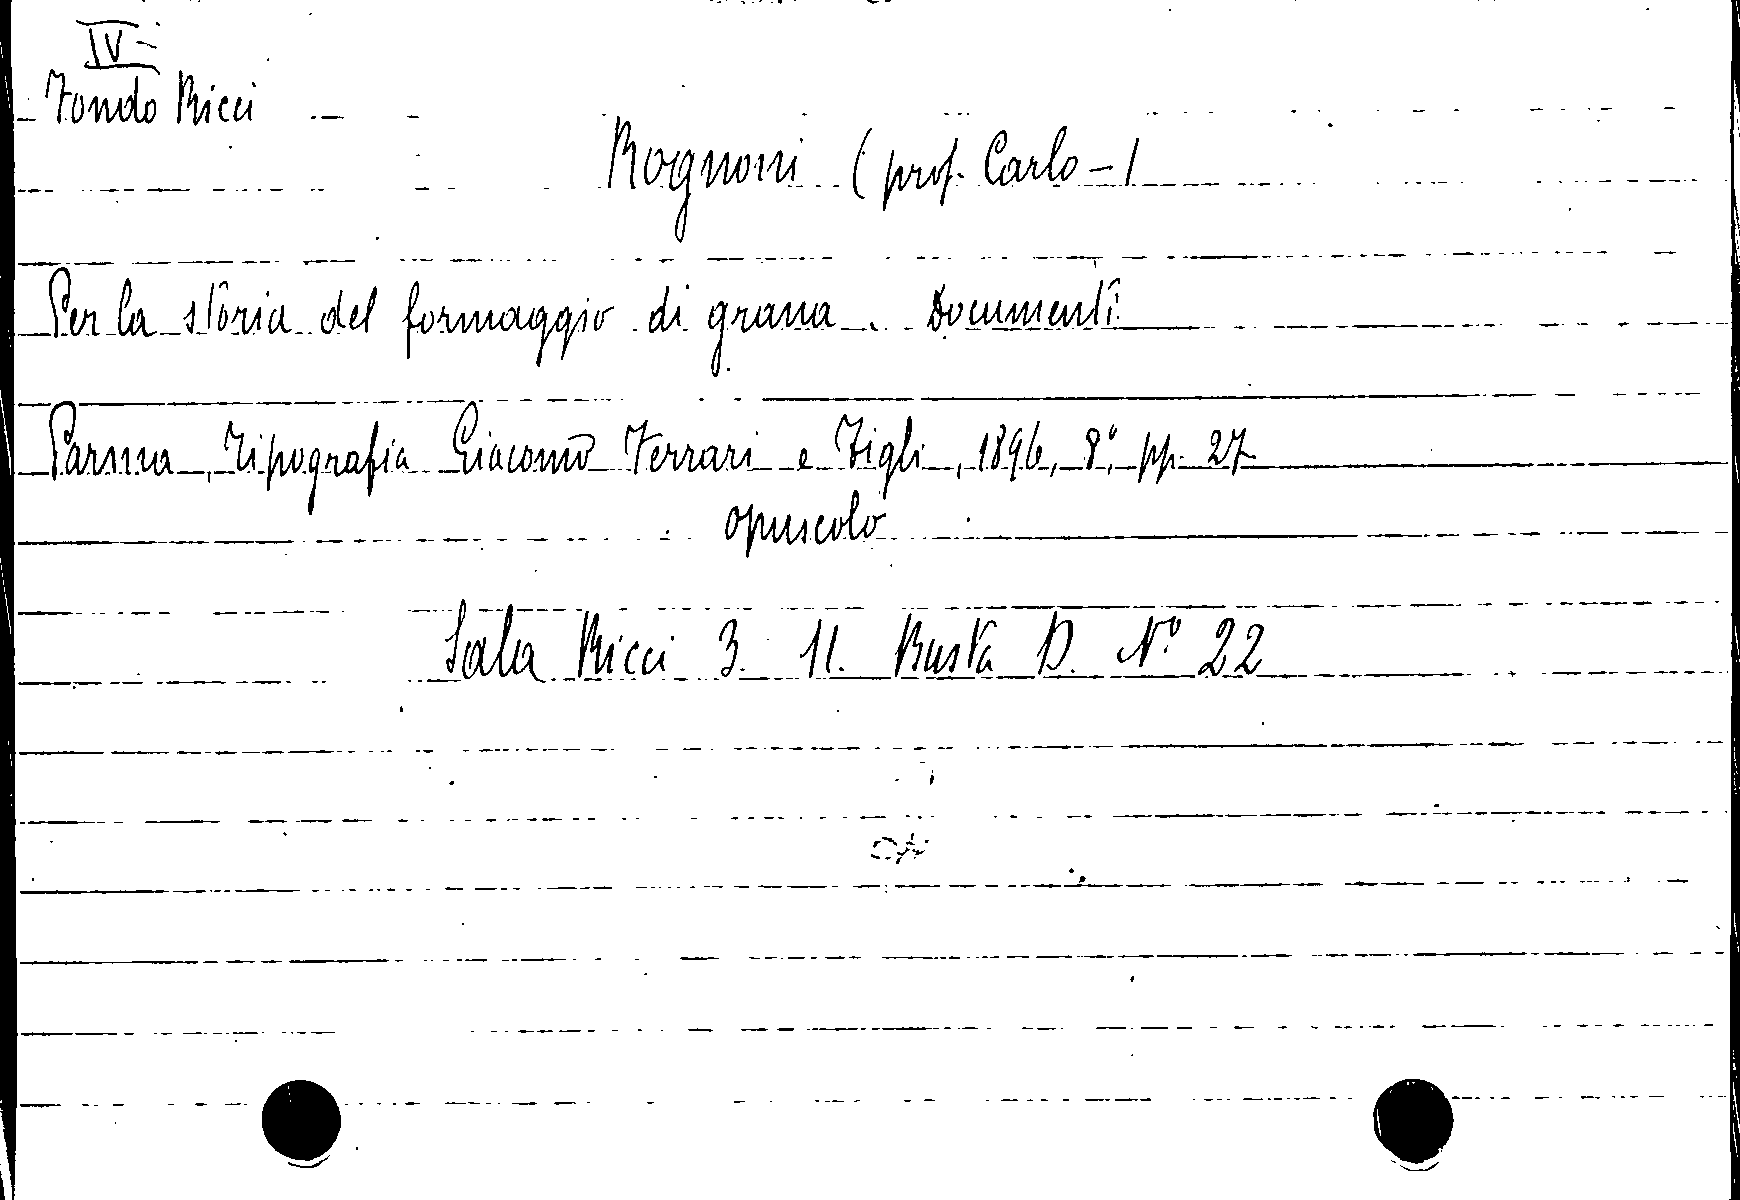 IV-
Fondo Ricci
Rognoni (prof. Carlo-)
Per la storia del formaggio di grana. Documenti
Parma, Tipografia Giacomo Ferrari e Figli, 1896, 8°, pp. 27
opuscolo
Sala Ricci 3. 11. Busta D. N° 22